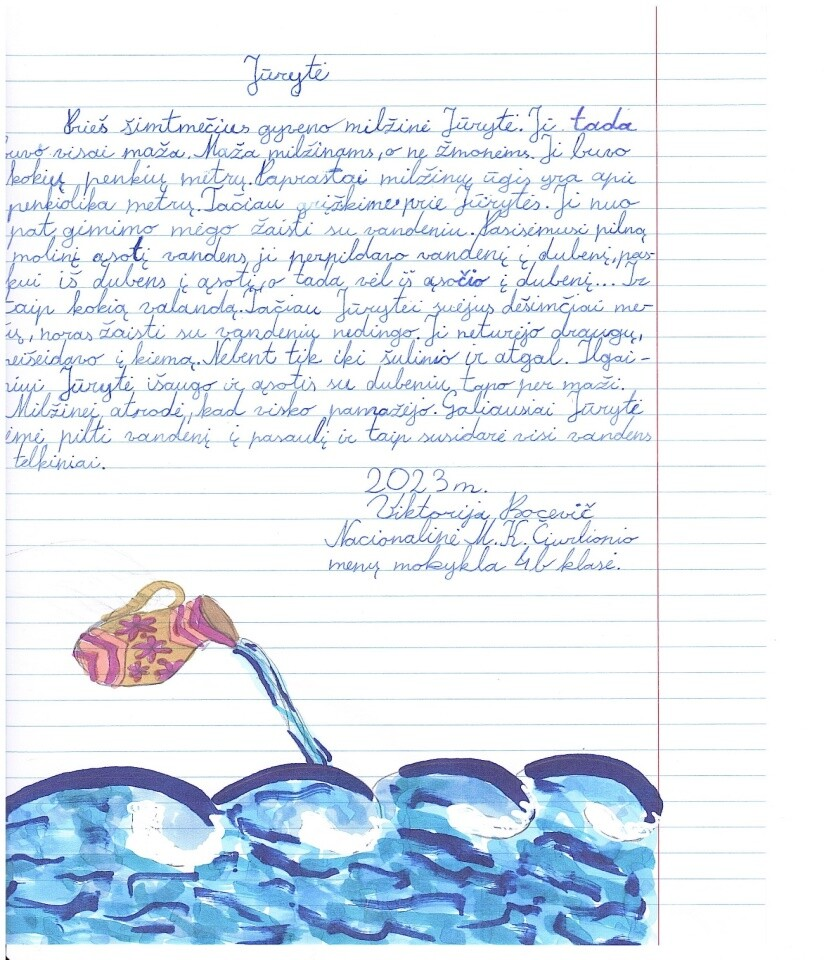 Jūrytė
Prieš šimtmečius gyveno milžinė Jūrytė. Ji tada
buvo visai maža. Maža milžinams, o ne žmonėms. Ji buvo
kokių penkių metrų. Paprastai milžinų ūgis yra apie
penkiolika metrų. Tačiau grįžkime prie Jūrytės. Ji nuo
pat gimimo mėgo žaisti su vandeniu. Pasisėmusi pilną
molinį ąsotį vandens ji perpildavo vandenį į dubenį, pas-
kui iš dubens į ąsotį, o tada vėl iš ąsočio į dubenį... Ir
taip kokią valandą. Tačiau Jūrytei suėjus dešimčiai me-
tų, noras žaisti su vandeniu nedingo. Ji neturėjo draugų,
neišeidavo į kiemą. Nebent tik iki šulinio ir atgal. Ilgai-
niui Jūrytė išaugo ir ąsotis su dubeniu tapo per maži.
Milžinei atrodė, kad visko pamažėjo. Galiausiai Jūrytė
ėmė pilti vandenį į pasaulį ir taip susidarė visi vandens
telkiniai.
2023 m.
Viktorija Bocevič
Nacionalinė M. K. Čiurlionio
menų mokykla 4b klasė.